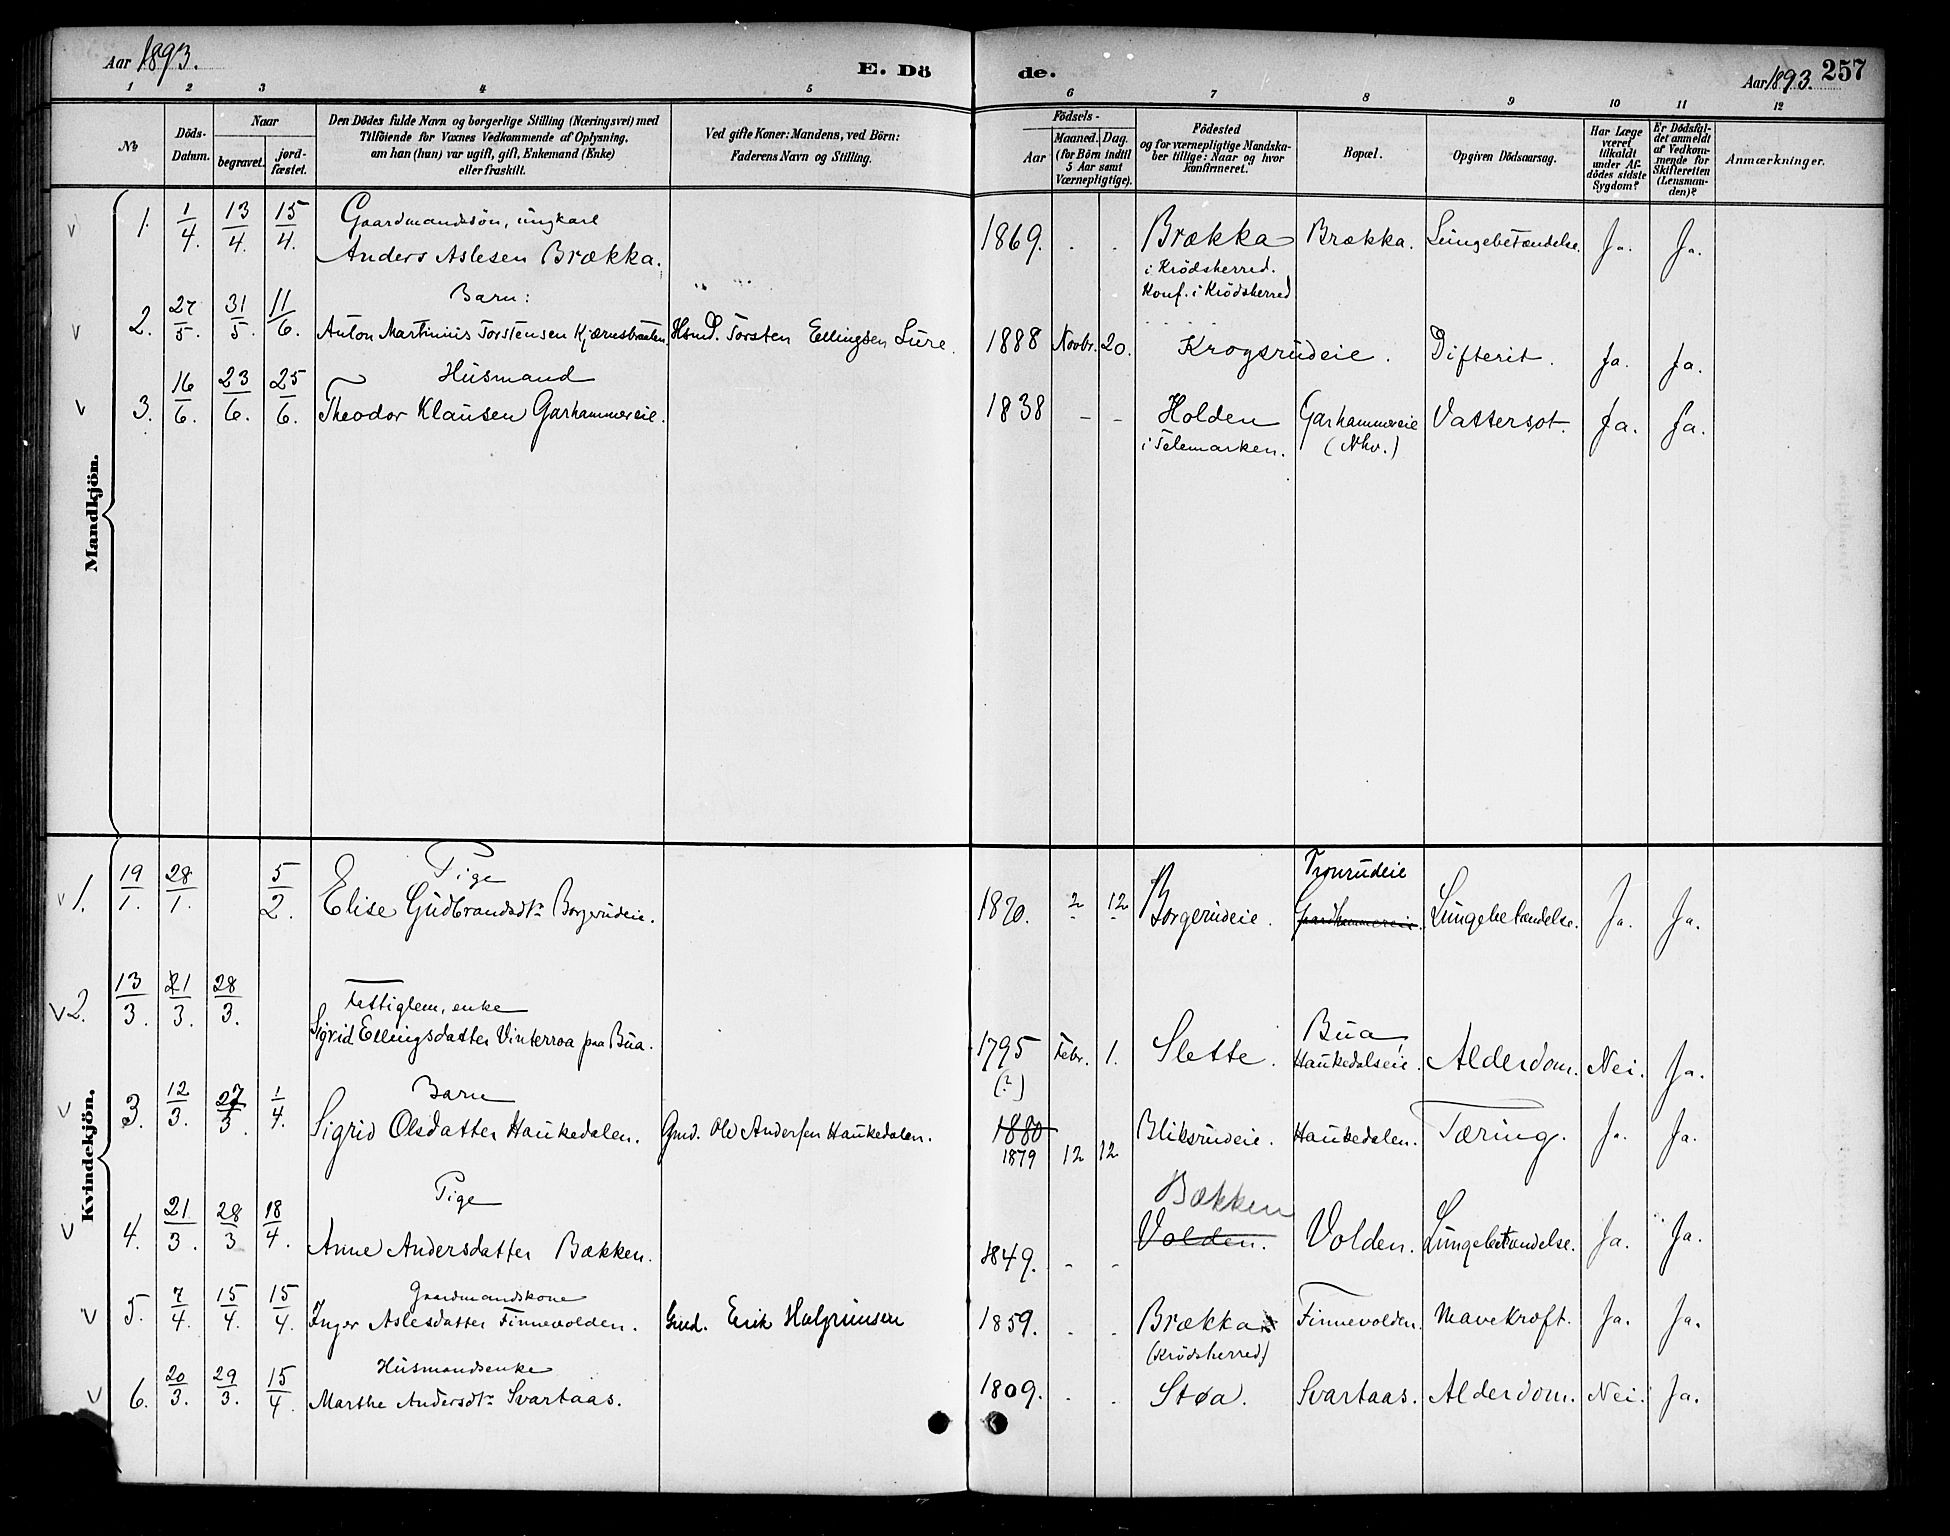 Aar 1893.
E. Dö
de.
Aar 1893. 257
1 2 3 4 5 6 7 8 9 10 11 12
No
Döds-
Datum.
Naar
begravet.
jord-
fæstet.
Den Dödes fulde Navn og borgerlige Stilling (Næringsvei) med
Tilföiende for Voxnes Vedkommende af Oplysning,
om han (hun) var ugift, gift, Enkemand (Enke)
eller fraskilt.
Ved gifte Koner: Mandens, ved Börn:
Faderens Navn og Stilling.
Födsels-
Aar
Maaned. Dag.
(for Börn indtil
5 Aar samt
Værnepligtige).
Födested
og for værnepligtige Mandska-
ber tillige: Naar og hvor
konfirmeret.
Bopæl.
Opgiven Dödsaarsag.
Har Læge
været
tilkaldt
under Af-
dödes sidste
Sygdom?
Er Dödsfal-
det anmeldt
af Vedkom-
mende for
Skifteretten
(Lensman-
den)?
Anmærkninger.
Mandkjön.
Gaardmandssön, ungkarl
1. 1/4. 13/4. 15/4. Anders Aslesen Brækka. 1869. . . Brækka Brækka. Lungebetændelse. Ja. Ja.
i Krödsherred.
Konf. i Krödsherred
Barn:
2. 27/5. 31/5. 11/6. Anton Martinius Torstensen Kjærnsbraaten. Hsmd. Torsten Ellingsen Lure. 1888 Novbr. 20. Krogsrudeie. Difterit. Ja. Ja.
Husmand
3. 16/6. 23/6. 25/6. Theodor Klausen Garhammereie. 1838 - - Holden Garhammereie Vattersot. Ja. Ja.
i Telemarken. (Nhv.)
Kvindekjön.
Pige Tronrudeie
1. 19/1. 28/1. 5/2. Elise Gudbrandsdtr Borgerudeie. 1870. 2 12 Borgerudeie. Gardhammereie. Lungebetændelse. Ja. Ja.
Fattiglem, enke Bua
2. 13/3. 21/3. 28/3. Sigrid Ellingsdatter Vinterroa paa Bua. 1795 Febr. 1. Slette. Haukedalseie. Alderdom. Nei. Ja.
(?)
Barn
3. 12/3. 27/3. 1/4. Sigrid Olsdatter Haukedalen. Gmd. Ole Andersen Haukedalen. 1880 Bliksrudeie. Haukedalen. Tæring. Ja. Ja.
1879 12 12
Pige Bækken
4. 21/3. 28/3 18/4. Anne Andersdatter Bækken. 1849. - - Volden. Volden. Lungebetændelse. Ja. Ja.
Gaardmandskone
5. 7/4. 15/4. 15/4. Inger Aslesdatter Finnevolden. Gmd. Erik Halgrimsen 1859. . . Brækka Finnevolden. Mavekræft. Ja. Ja.
(Krödsherred)
Husmandsenke
6. 20/3. 29/3. 15/4. Marthe Andersdtr Svartaas. 1809. . . Støa. Svartaas. Alderdom. Nei. Ja.